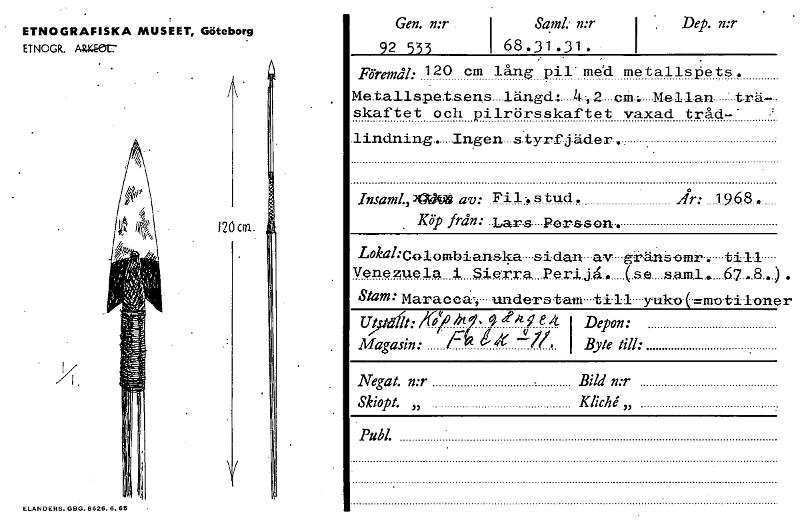 ETNOGRAFISKA MUSEET, Göteborg
ETNOGR. ARKEOL.
120 cm.
1/1.
ELANDERS. GBG. 8626. 6. 65
Gen. n:r Saml. n:r Dep. n:r
92 533 68.31.31.
Föremål: 120 cm lång pil med metallspets.
Metallspetsens längd: 4,2 cm. Mellan trä-
skaftet och pilrörsskaftet vaxad tråd-
lindning. Ingen styrfjäder.
Insaml., av: Fil.stud. År: 1968.
Köp från: Lars Persson.
Lokal: Colombianska sidan av gränsomr. till
Venezuela i Sierra Perijá. (se saml. 67.8.).
Stam: Maraca, understam till yuko(=motiloner
Utställt: Köpmg. gången Depon:
Magasin: Fack -11. Byte till:
Negat. n:r Bild n:r
Skiopt. „ Kliché „
Publ.